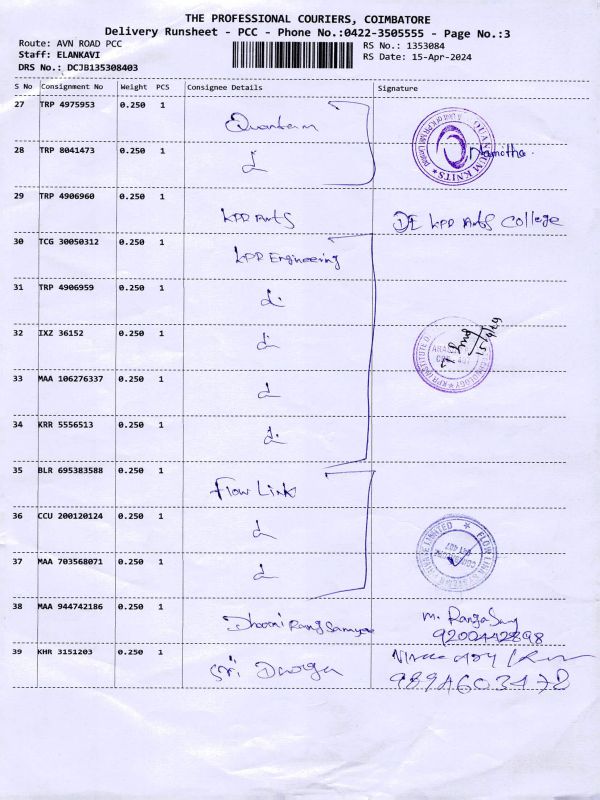 THE PROFESSIONAL COURIERS, COIMBATORE
Delivery Runsheet - PCC - Phone No.:0422-3505555 - Page No.:3
Route: AVN ROAD PCC RS No.: 1353084
Staff: ELANKAVI RS Date: 15-Apr-2024
DRS No.: DCJB135308403
S No Consignment No Weight PCS Consignee Details Signature
27 TRP 4975953 0.250 1 Quantum QUANTUM KNITS
28 TRP 8041473 0.250 1
29 TRP 4906960 0.250 1 KPR Arts KPR Arts College
30 TCG 30050312 0.250 1 KPR Engineering
31 TRP 4906959 0.250 1
32 IXZ 36152 0.250 1 KPR INSTITUTE 15/4/24
33 MAA 106276337 0.250 1
34 KRR 5556513 0.250 1
35 BLR 695383588 0.250 1 Flow Link
36 CCU 200120124 0.250 1 FLOW LINK LIMITED
37 MAA 703568071 0.250 1
38 MAA 944742186 0.250 1 M. RangaSamy
9200442898
39 KHR 3151203 0.250 1 Sri Durga